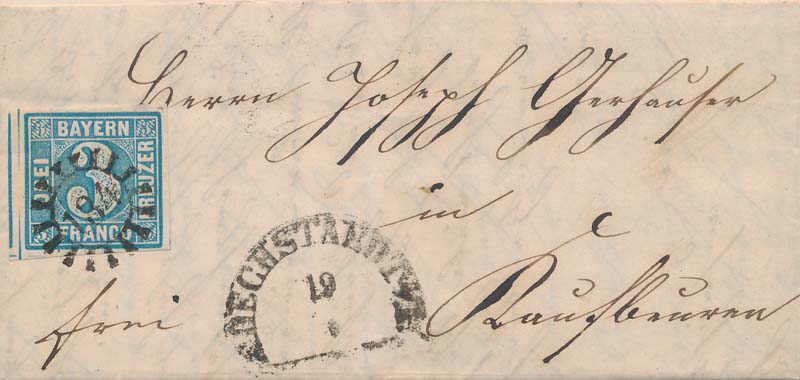 Herrn Joseph Gerhauser
BAYERN
DREI
3
KREUZER
FRANCO
in
19
frei
Kaufbeuren